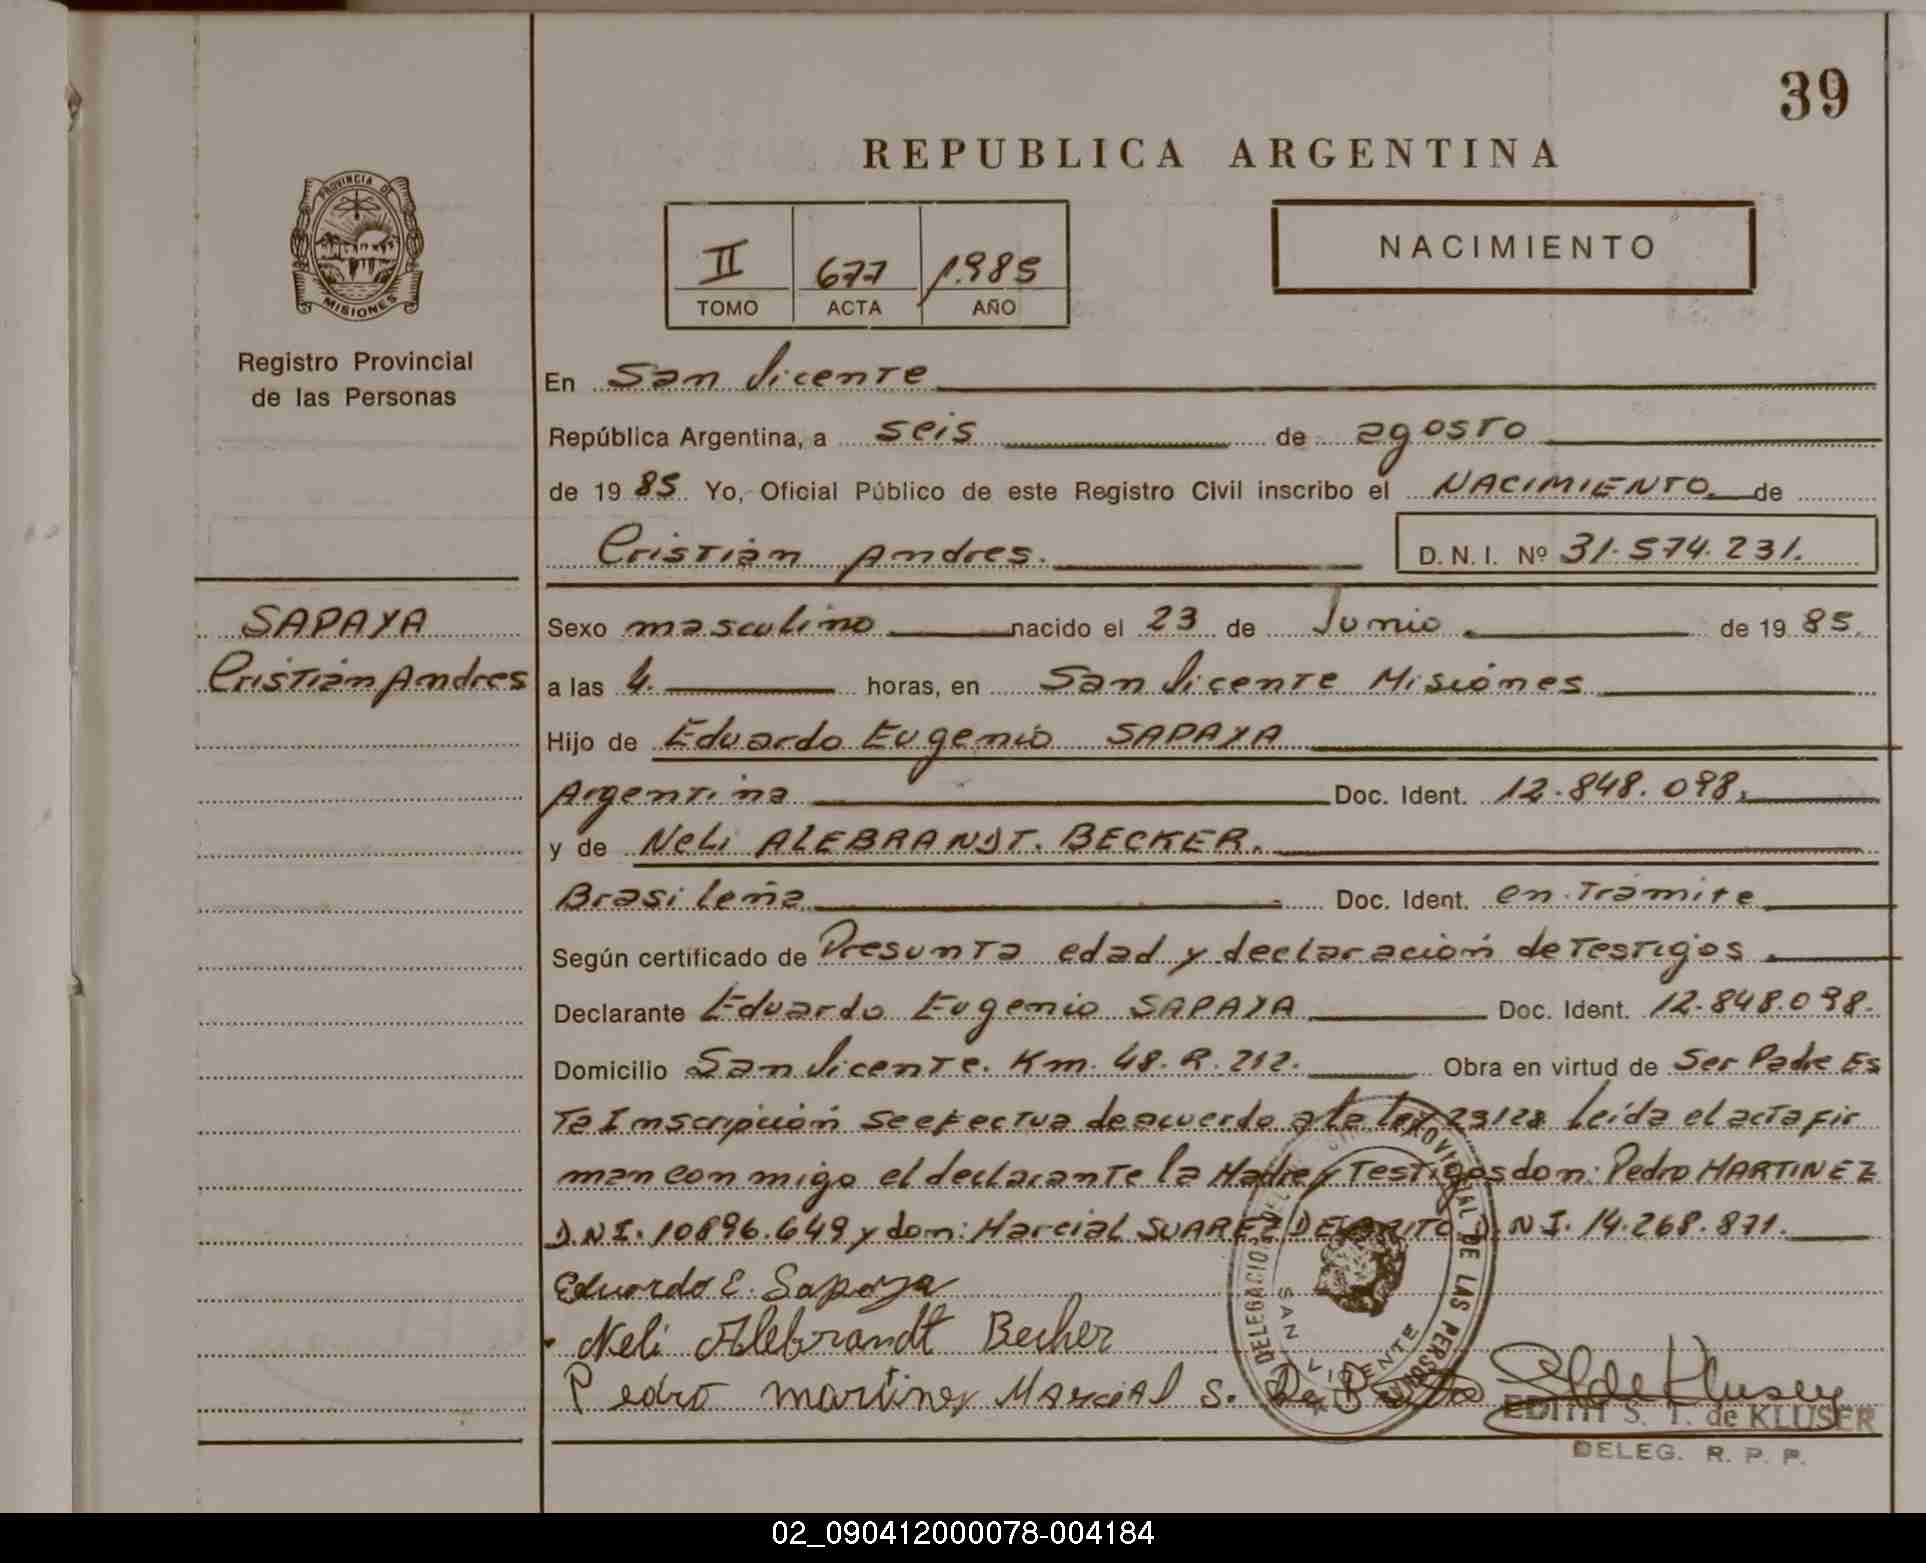 39
REPUBLICA ARGENTINA
PROVINCIA DE
MISIONES
Registro Provincial
de las Personas
II 677 1.985
TOMO ACTA AÑO
NACIMIENTO
En San Vicente
República Argentina, a seis de agosto
de 19 85 Yo, Oficial Público de este Registro Civil inscribo el NACIMIENTO de
Cristian Andres. D. N. I. Nº 31.574.231.
SAPAYA
Cristian Andres
Sexo masculino nacido el 23 de Junio de 19 85.
a las 4. horas, en San Vicente Misiones
Hijo de Eduardo Eugenio SAPAYA
Argentina Doc. Ident. 12.848.098.
y de Neli ALEBRANDT. BECKER.
Brasileña Doc. Ident. en Tramite
Según certificado de Presunta edad y declaración de Testigos
Declarante Eduardo Eugenio SAPAYA Doc. Ident. 12.848.098.
Domicilio San Vicente. Km. 48. R. 212. Obra en virtud de Ser Padre Es
Ta Inscripción se efectua de acuerdo a la ley 23128 leída el acta fir
man conmigo el declarante la Madre y Testigos don: Pedro MARTINEZ
D.N.I. 10896.649 y don: Marcial SUAREZ DE BRITO D.N.I. 14.268.871.
Eduardo E. Sapaya
Neli Alebrandt Becker
Pedro martinez Marcial S. De Brito
DE LAS PERSONAS
SAN VICENTE
EDITH S. T. de KLUSER
DELEG. R. P. P.
02_090412000078-004184